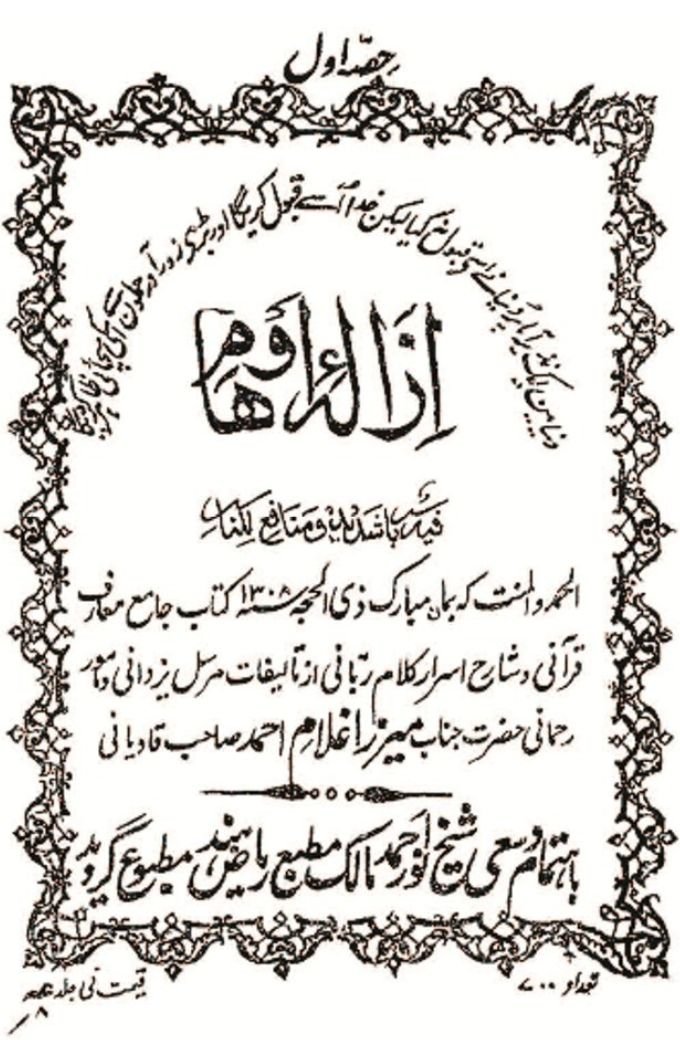 حصّہ اول
دنیا میں ایک نذیر آیا پر دنیا نے اسے قبول نہ کیا لیکن خدا اُسے قبول کریگا اور بڑے زور آور حملوں سے اسکی سچائی ظاہر کر دیگا
ازالہ اوہام
فیہ بأس شدید و منافع للناس
الحمد و المنت کہ بماہ مبارک ذی الحجہ ۱۳۰۸ کتاب جامع معارف
قرآنی و شارح اسرار کلام ربّانی از تالیفات مرسل یزدانی و مامور
رحمانی حضرت جناب میرزا غلام احمد صاحب قادیانی
باہتمام و سعی شیخ نور احمد مالک مطبع ریاض ہند مطبوع گردید
تعداد ۷۰۰
قیمت فی جلد